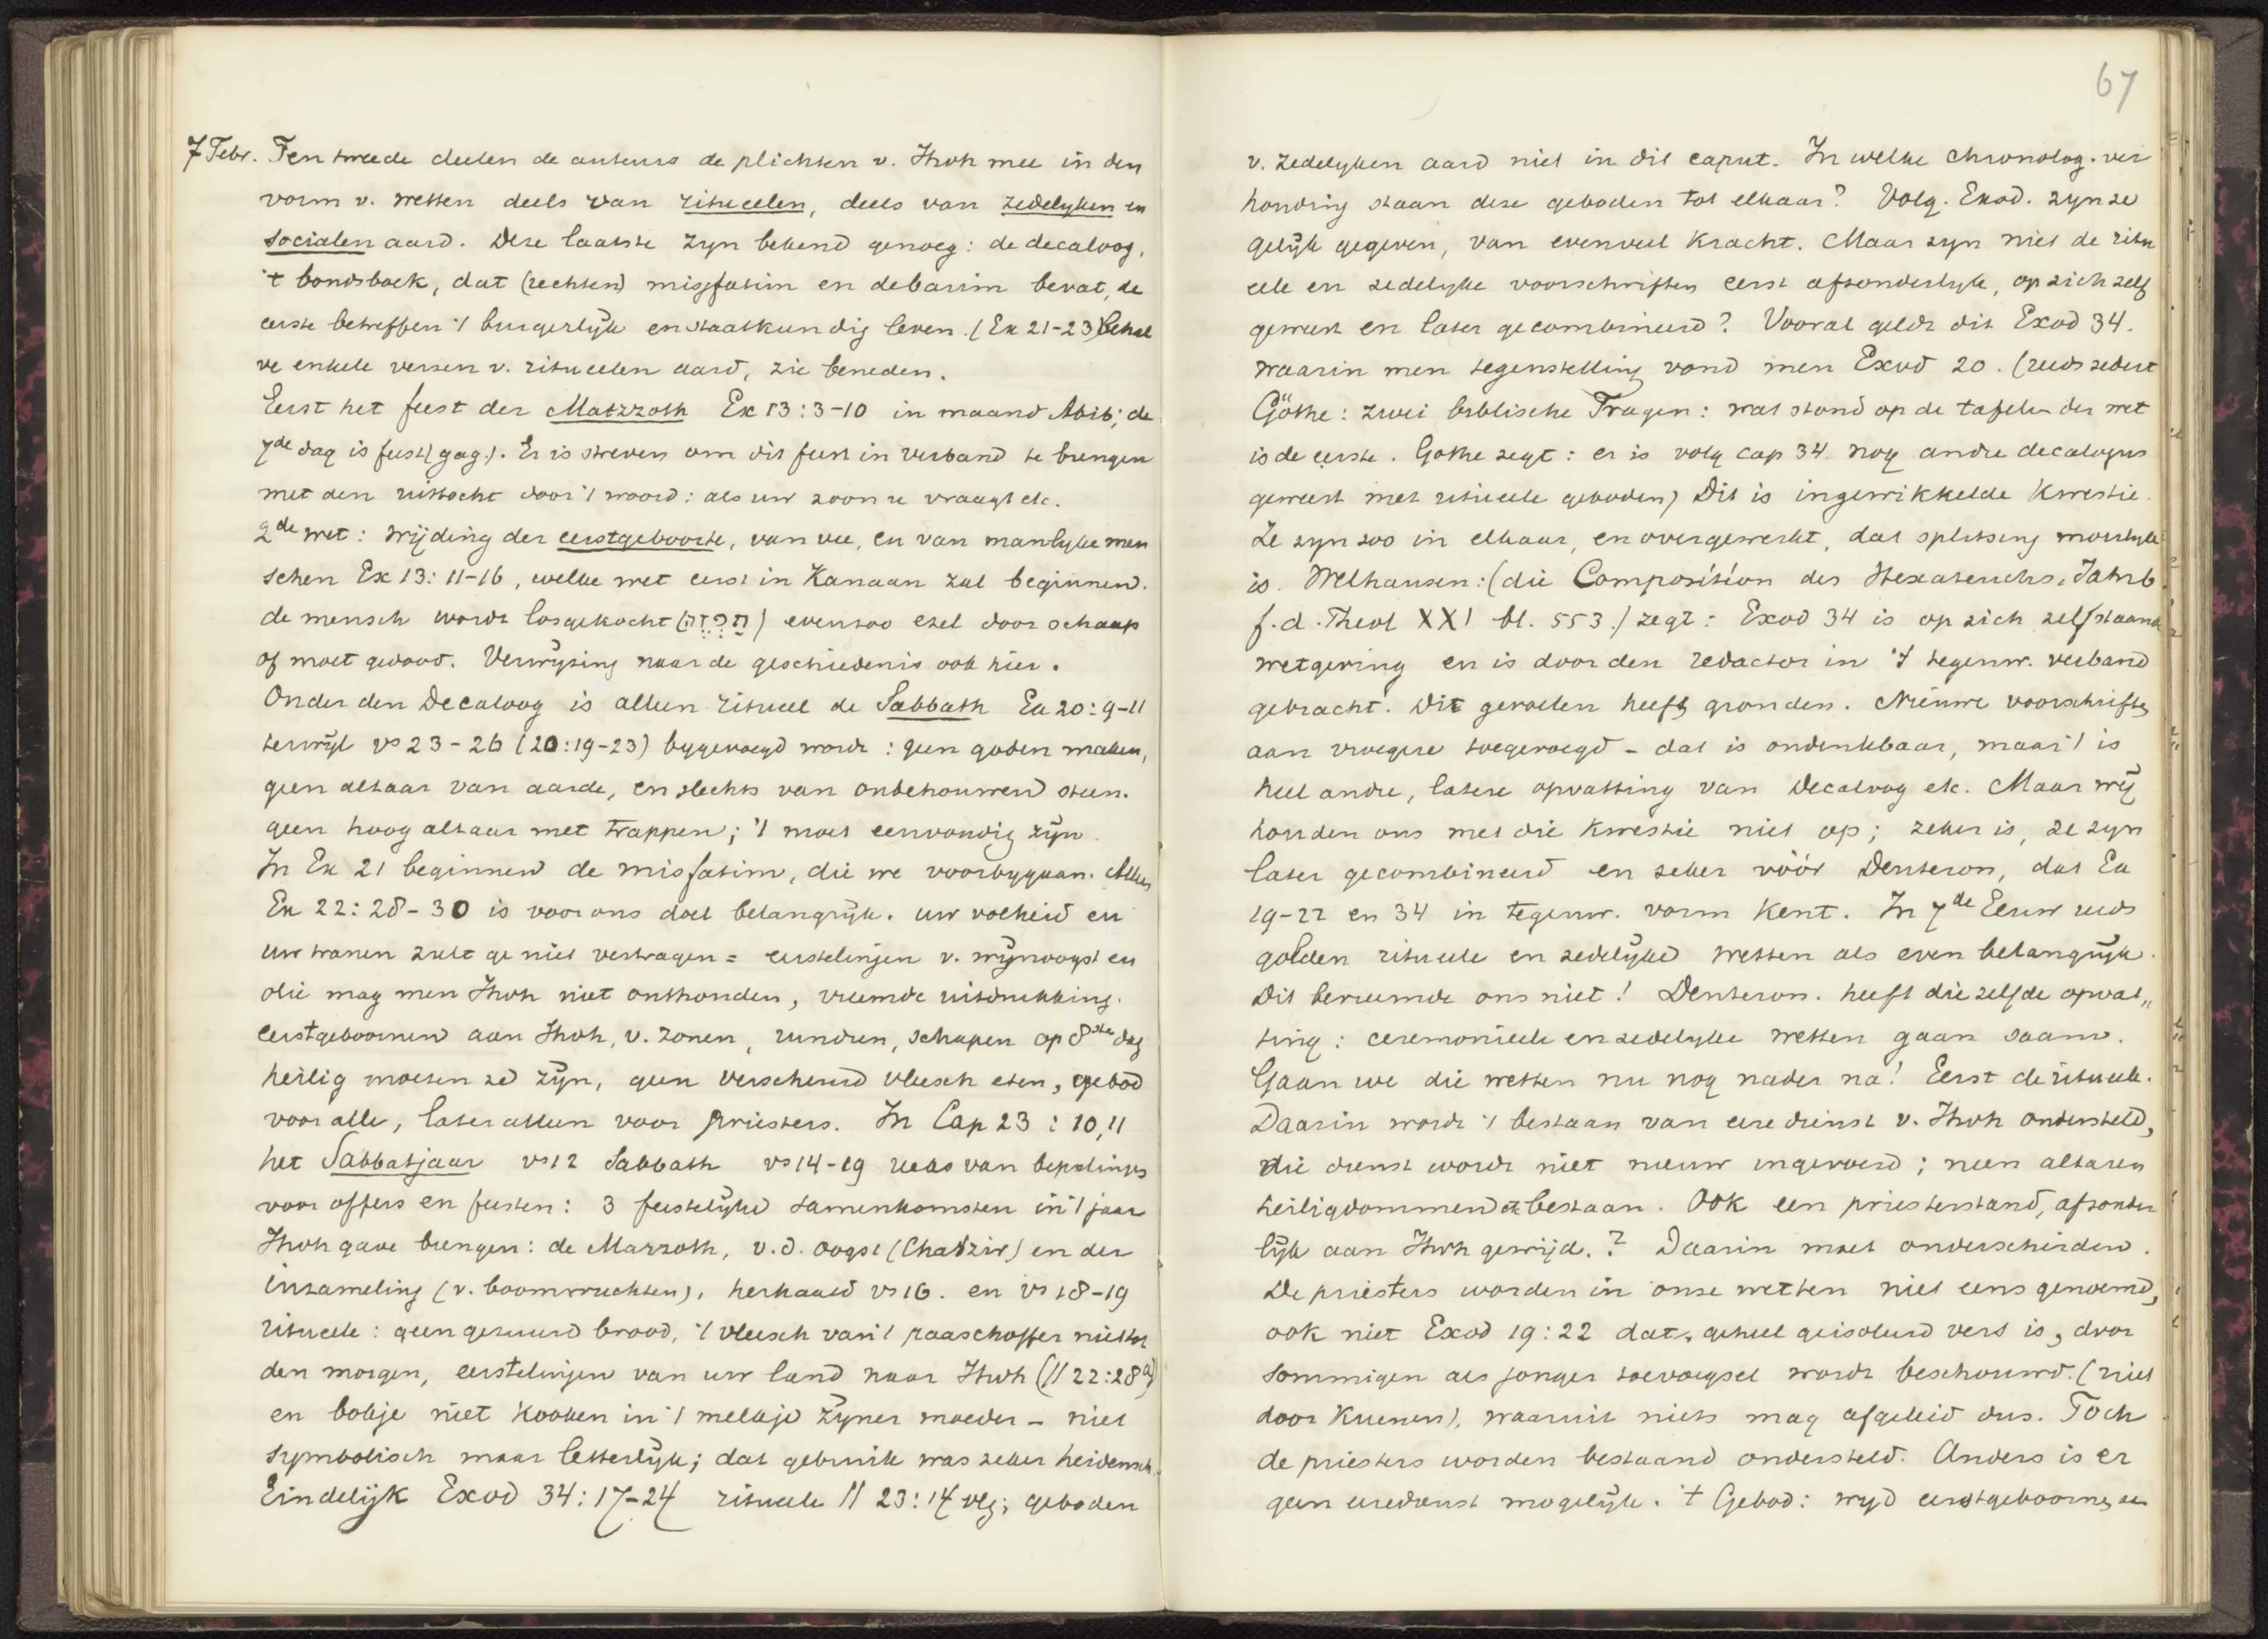 7 Febr. Ten tweede deelen de auteurs de plichten v. Jhvh mee in den
vorm v. wetten deels van ritueelen, deels van zedelyken en
socialen aard. Deze laatste zyn bekend genoeg: de decaloog,
't bondsboek, dat (rechten) misfatim en debarim bevat, de
eerste betreffen 't burgerlijk en staatkundig leven. (Ex 21-23) behal
ve enkele verzen v. ritueelen aard, zie beneden.
Eerst het feest der Matzzoth Ex 13:3-10 in maand Abib; de
7de dag is feest (gag.). Er is streven om dit feest in verband te brengen
met den uittocht door 't woord: als uw zoon u vraagt etc.
2de wet: wijding der eerstgeboorte, van vee, en van manlyke men
schen Ex 13:11-16, welke wet eerst in Kanaan zal beginnen.
de mensch wordt losgekocht evenzoo ezel door schaap
of moet gedood. Verwijzing naar de geschiedenis ook hier.
Onder den Decaloog is alleen ritueel de Sabbath Ex 20:9-11
terwijl vs 23-26 (20:19-23) bygevoegd wordt: geen goden maken,
geen altaar van aarde, en slechts van onbehouwen steen.
geen hoog altaar met trappen; 't moet eenvoudig zijn.
In Ex 21 beginnen de misfatim, die we voorbygaan. Alleen
Ex 22:28-30 is voor ons doel belangrijk. uw volheid en
uw tranen zult ge niet vertragen = eerstelingen v. wijnoogst en
olie mag men Jhvh niet onthouden, vreemde uitdrukking.
eerstgeboornen aan Jhvh, v. zonen, runderen, schapen op 8ste dag
heilig moeten ze zijn, geen verscheurd vleesch eten, gebod
voor alle, later alleen voor priesters. In Cap 23:10,11
het Sabbatjaar vs 12 Sabbath vs 14-19 reeks van bepalingen
voor offers en feesten: 3 feestelijke samenkomsten in 't jaar
Jhvh gave brengen: de Mazzoth, v.d. oogst (Chatzir) en der
inzameling (v. boomvruchten), herhaald vs 16. en vs 18-19
ritueele: geen gezuurd brood, 't vleesch van 't paaschoffer niet tot
den morgen, eerstelingen van uw land naar Jhvh (// 22:28a)
en bokje niet kooken in 't melkje zijner moeder - niet
symbolisch maar letterlijk; dat gebruik was zeker heidensch.
Eindelijk Exod 34:17-24 ritueele // 23:14 vlg; geboden
67
v. zedelyken aard niet in dit caput. In welke chronolog. ver
houding staan deze geboden tot elkaar? Volg. Exod. zyn ze
gelijk gegeven, van evenveel kracht. Maar zyn niet de ritu
eele en zedelyke voorschriften eerst afzonderlyk, op zich zelf
geweest en later gecombineerd? Vooral geldt dit Exod 34.
waarin men tegenstelling vond men Exod 20. (reeds sedert
Göthe: zwei biblische Fragen: wat stond op de tafelen der wet
is de eerste. Gothe zegt: er is volg cap 34 nog andre decalogus
geweest met ritueele geboden) Dit is ingewikkelde kwestie.
Ze zyn zoo in elkaar, en overgewerkt, dat splitsing moeilyk
is. Welhausen: (die Composition des Hexateuchs, Jahrb
f. d. Theol XXI bl. 553.) zegt: Exod 34 is op zich zelf staande
wetgeving en is door den redactor in 't tegenw. verband
gebracht. Dit gevoelen heeft gronden. Nieuwe voorschriften
aan vroegere toegevoegd - dat is ondenkbaar, maar 't is
heel andre, latere opvatting van Decaloog etc. Maar wij
houden ons met die kwestie niet op; zeker is, ze zyn
later gecombineerd en zeker vóór Deuteron, dat Ex
19-22 en 34 in tegenw. vorm kent. In 7de Eeuw reeds
golden ritueele en zedelijke wetten als even belangrijk.
Dit bevreemde ons niet! Deuteron. heeft die zelfde opvat„
ting: ceremonieele en zedelyke wetten gaan saam.
Gaan we die wetten nu nog nader na! Eerst de ritueele.
Daarin wordt 't bestaan van eeredienst v. Jhvh ondersteld,
die dienst wordt niet nieuw ingevoerd; neen altaren
heiligdommen etc bestaan. Ook een priesterstand, afzonder
lijk aan Jhvh gewijd.? Daarin moet onderscheiden.
De priesters worden in onze wetten niet eens genoemd,
ook niet Exod 19:22 dat geheel geisoleerd vers is, door
sommigen als jonger toevoegsel wordt beschouwd. (niet
door Kuenen), waaruit niets mag afgeleid dus. Toch
de priesters worden bestaand ondersteld. Anders is er
geen eeredienst mogelijk. 't Gebod: wijd eerstgeboorne, en